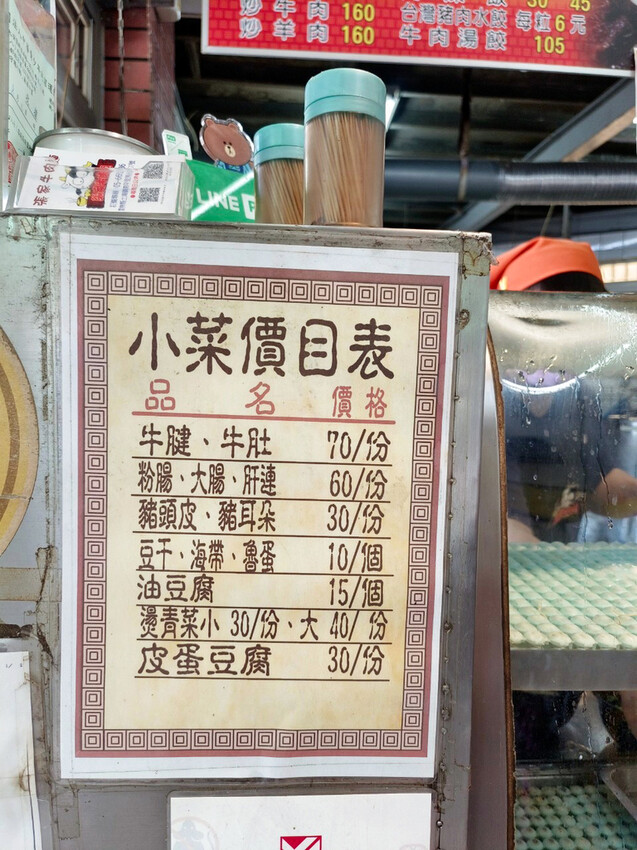 炒牛肉 160 台灣豬肉水餃 每粒6元
炒羊肉 160 牛肉湯餃 105
30 45
LINE P
小菜價目表
品名 價格
牛腱、牛肚 70/份
粉腸、大腸、肝連 60/份
豬頭皮、豬耳朵 30/份
豆干、海帶、魯蛋 10/個
油豆腐 15/個
燙青菜小 30/份、大 40/份
皮蛋豆腐 30/份